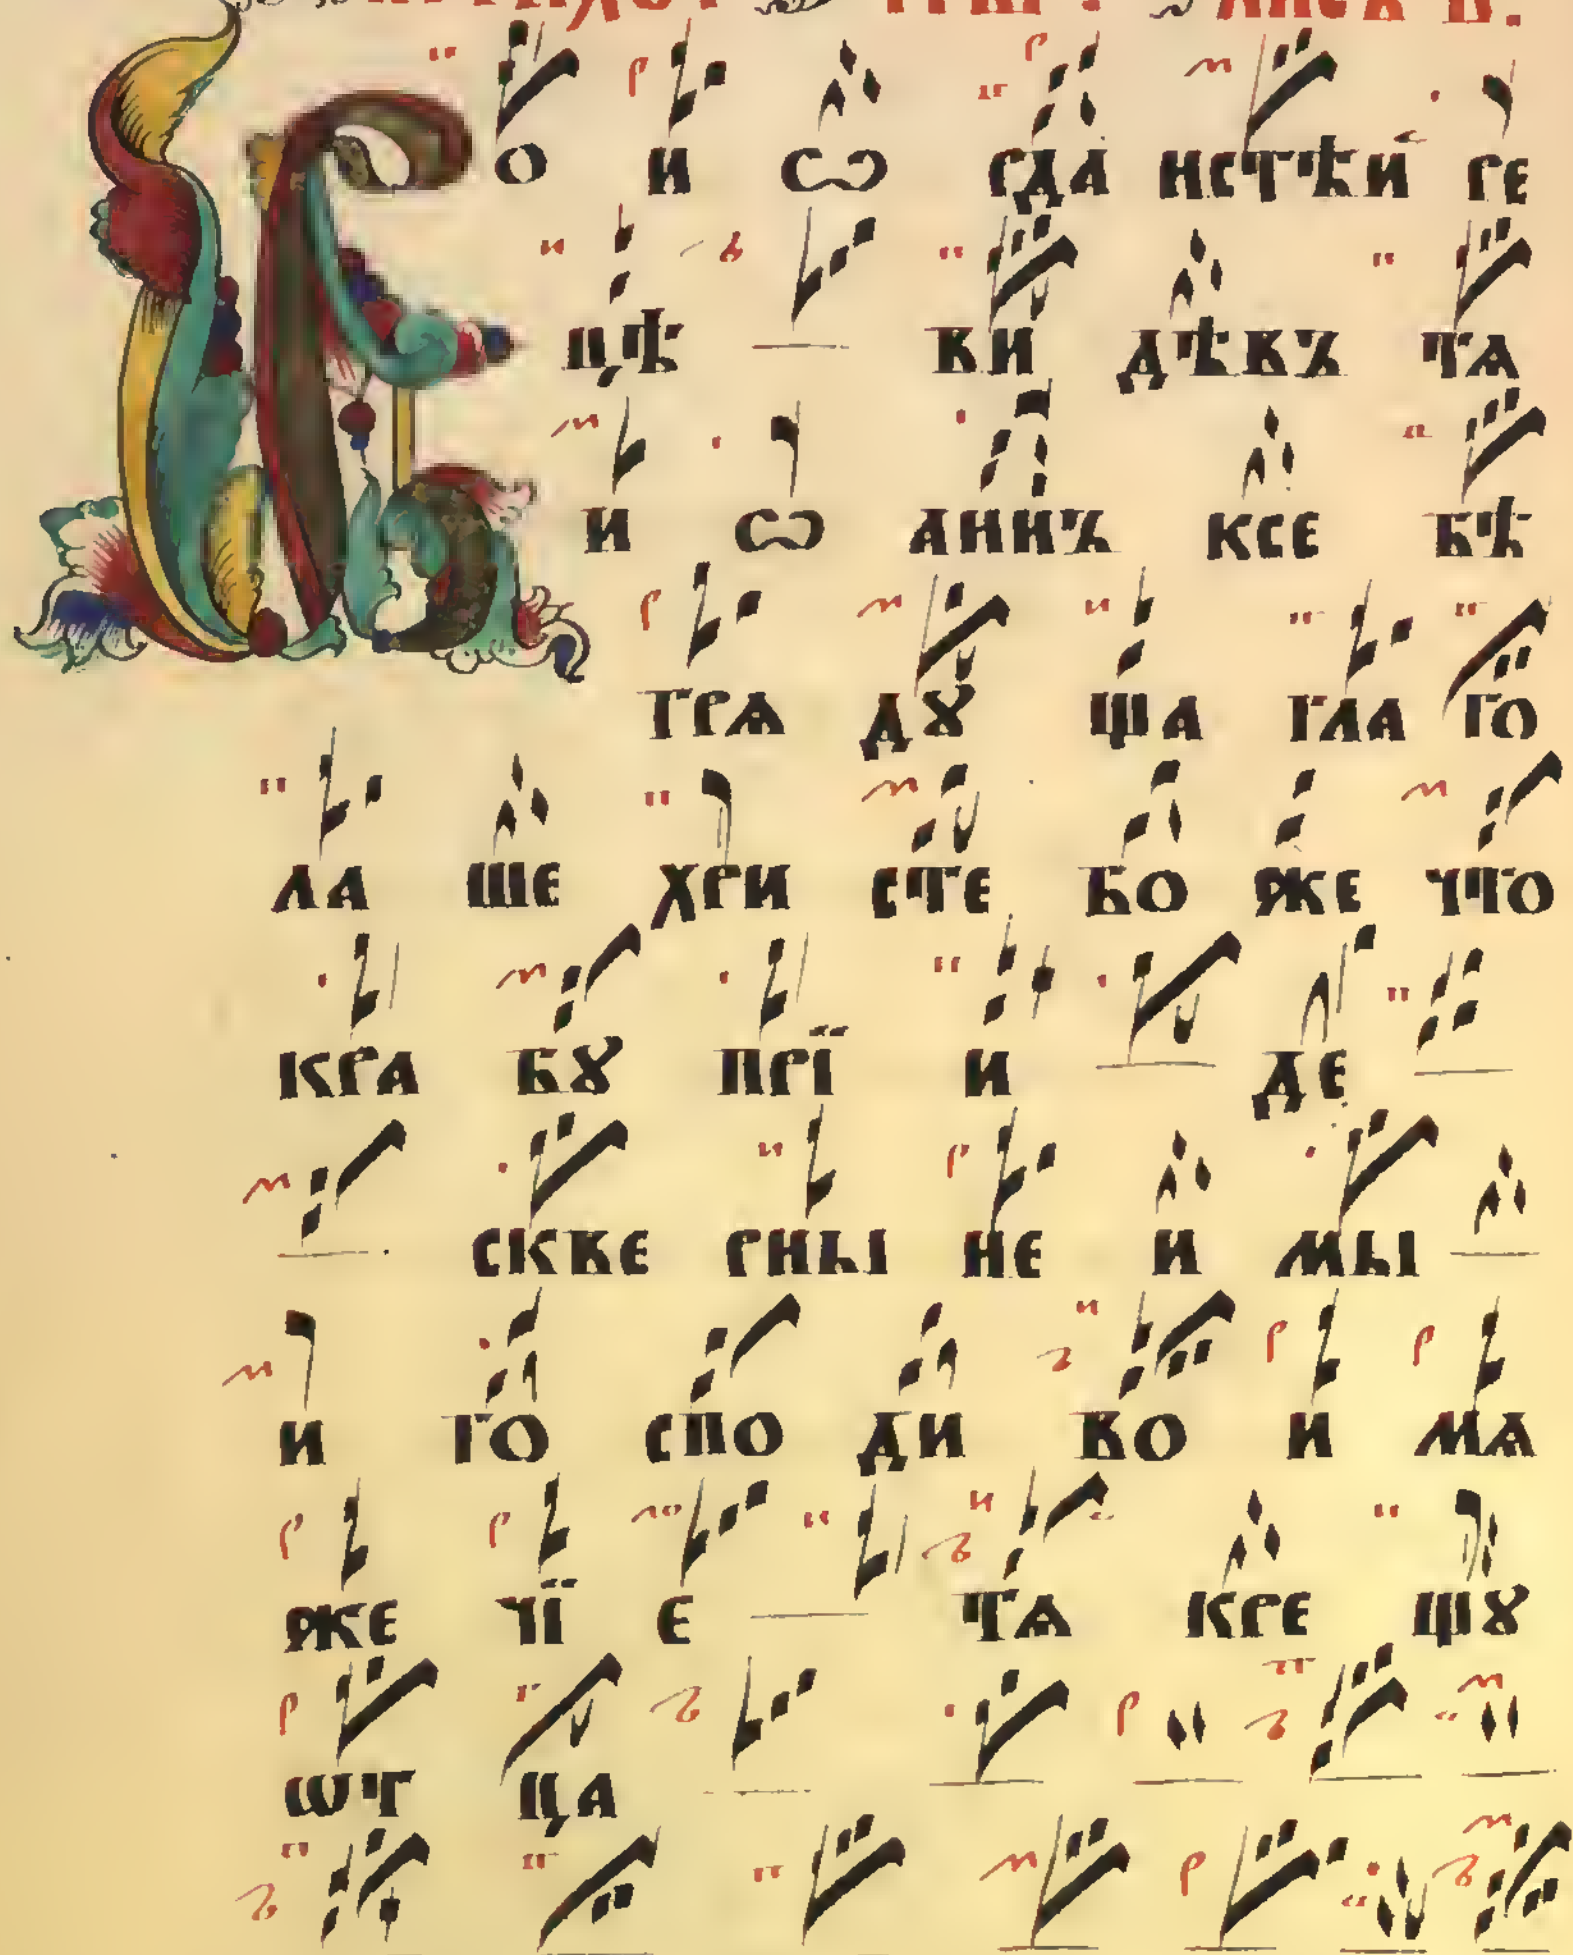 В О И Ѡ РДА НСТѢЙ РЕ
ЦѢ ВИ ДѢВЪ ТѦ
И Ѡ АННЪ КСЕ БѢ
ГРѦ ДꙊ ЩА ГЛА ГО
ЛА ШЕ ХРИ СТЕ БО ЖЕ ЧТО
КРА БꙊ ПРЇ И ДЕ
СКВЕ РНЫ НЕ И МЫ
И ГО СПО ДИ ВО И МѦ
ЖЕ ЧЇ Е ТѦ КРЕ ЩꙊ
ѠТ ЦА